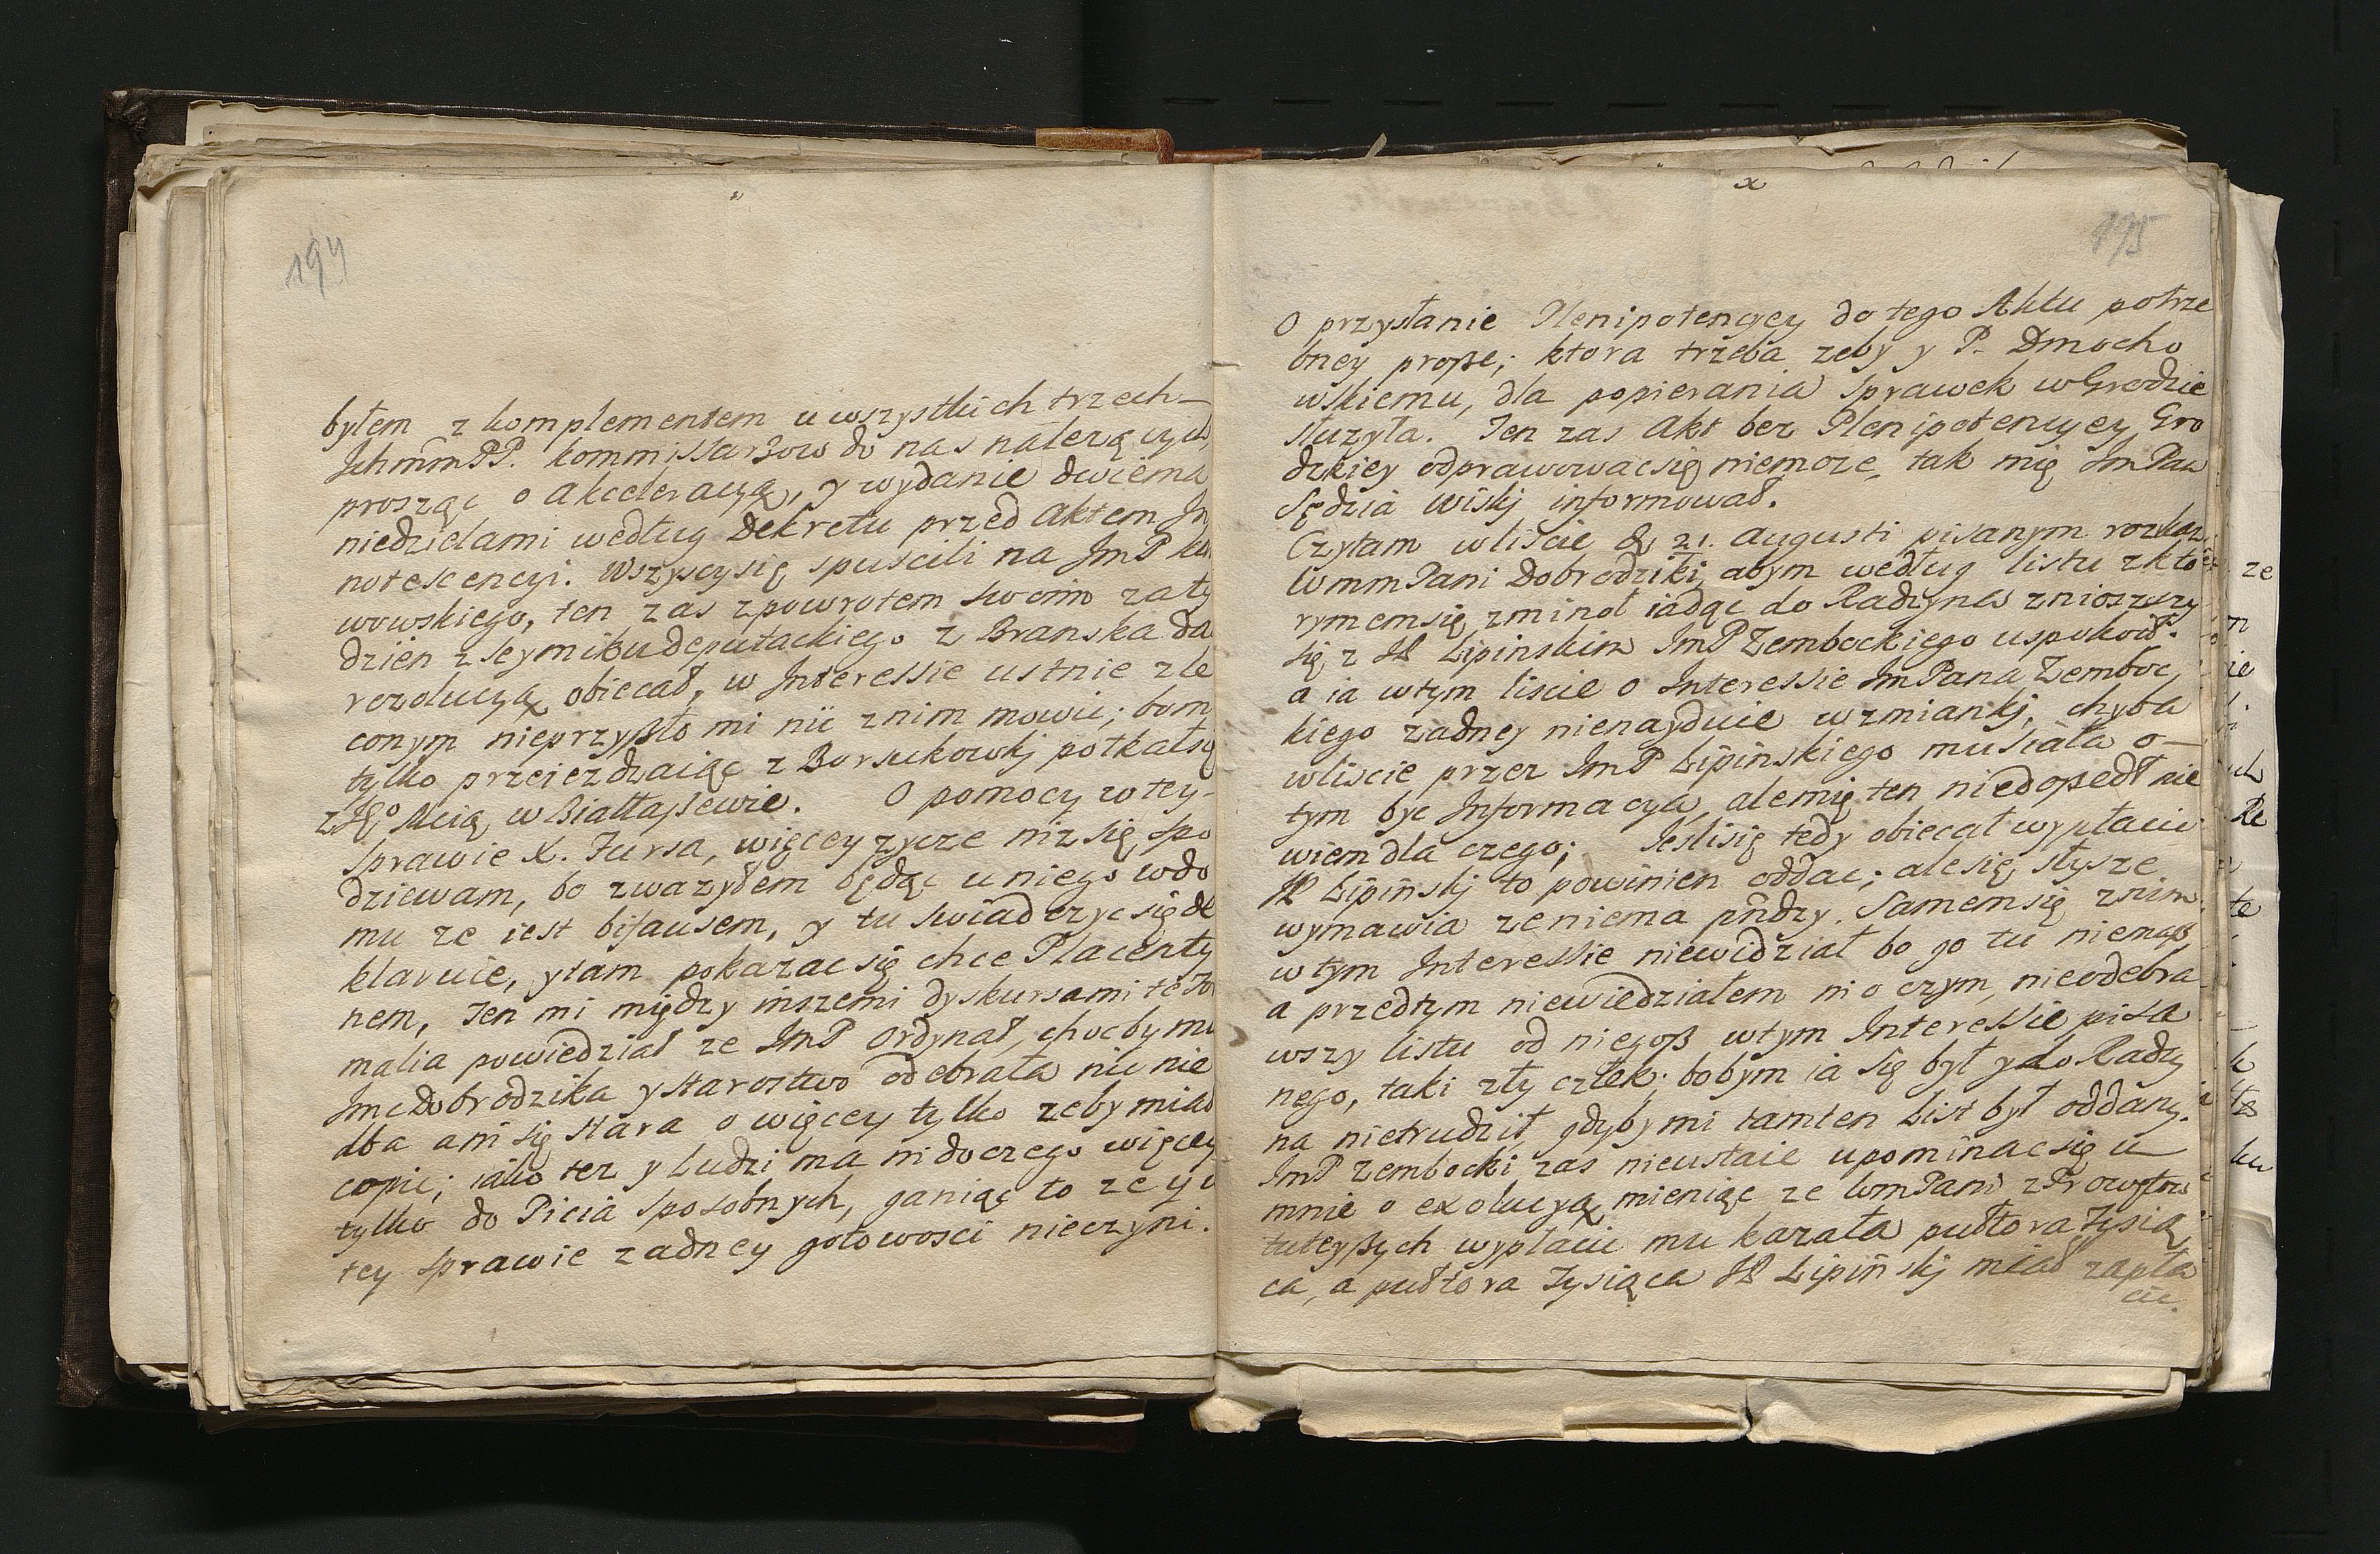 194
byłem z komplementem u wszystkich trzech
JchmmPP. kommissarzow do nas należących
prosząc o akceleracyą, y wydanie dwiema
niedzielami według Dekretu przed aktem In
notescencyi. Wszyscy się spuscili na JmP ku
wowskiego, ten zas zpowrotem swoim za ty
dzien z seymiku deputackiego z Branska da
rezolucyą obiecał, w Interessie ustnie zle
conym nieprzyszło mi nic znim mowic; bom
tylko przeiezdzaiąc z Borsukowkj potkał się
z Jgo Mcią w Białłaszewie. O pomocy w tey
sprawie X. Jursa, więcey zycze niz się spo
dziewam, bo zwazyłem będąc u niego w do
mu ze iest bifausem, y tu swiadczyc się de
klaruie, y tam pokazac się chce Placenty
nem, Ten mi między inszemi dyskursami te fo
malia powiedział ze JmP Ordynat, chocby mu
Jmc dobrodzika y starostwo odebrała nic nie
dba ani się stara o więcey tylko zeby miał
co pic; iako tez y ludzi ma ni do czego więcey
tylko do Picia sposobnych, ganiąc to ze y w
tey sprawie zadney gotowosci nieczyni.
195
O przysłanie Plenipotencyey do tego Aktu potrze
bney prosze; ktora trzeba zeby y P. Dmocho
wskiemu, dla popierania sprawek w Grodzie
słuzyła. Ten zas Akt bez Plenipotencyey Gro
dzkiey odprawowac się niemoze, tak mię JmPan
Sędzia wiskj informował.
Czytam w liscie 21. Augusti pisanym rozkaz
WmmPani Dobrodziki, abym według listu z kto
rymem się zminoł iadąc do Radzyna znioszszy
się z JP Lipinskim JmP Zembockiego uspokoił.
a ia w tym liscie o Interessie JmPana Zemboc
kiego zadney nienayduie wzmiankj, chyba
w liscie przez JmP Lipinskiego musiała o
tym byc Informacya, ale mię ten niedoszedł nie
wiem dla czego; Jesli się tedy obiecał wypłacic
JP Lipinskj to powinien oddac; ale się słysze
wymawia ze niema pndzy. Samem się znim
w tym Interessie niewidział bo go tu niemasz
a przedtym niewiedziałem ni o czym, nieodebra
wszy listu od niegosz w tym Interessie pisa
nego, taki zły człek; bo bym ia się był y do Radzy
na nietrudził, gdyby mi tamten List był oddany.
JmP Zembocki zas nieustaie upominac się u
mnie o exolucyą, mieniąc ze WmPani z Prowentow
tuteyszych wypłacic mu kazała pułtora Tysią
ca, a pułtora Tysiąca JP Lipinskj miał zapła
cic.